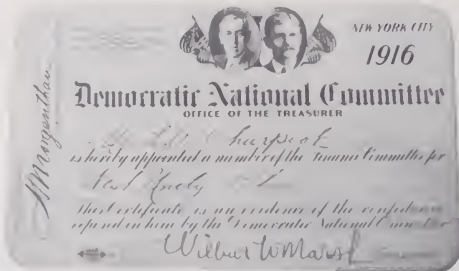 NEW YORK CITY
1916
Democratic National Committee
OFFICE OF THE TREASURER
is hereby appointed a member of the Finance Committee for
This certificate is an evidence of the confidence
reposed in him by the Democratic National Committee
Wilbur W Marsh
H Morgenthau